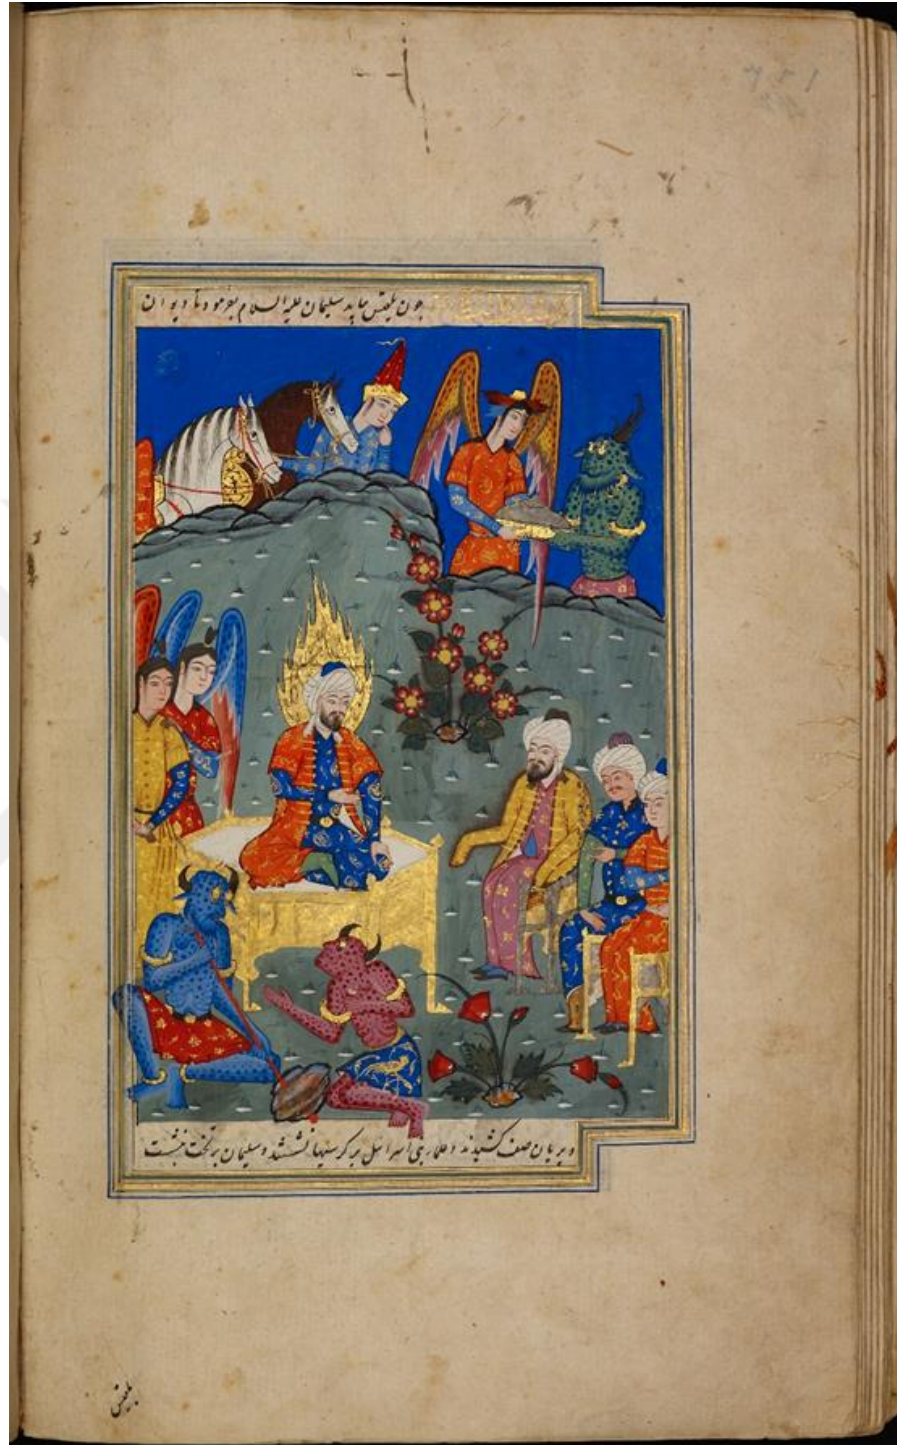 چون بلقیس بیامد سلیمان علیه السلام بفرمود تا دیوان
و پریان صف کشیدند و علماء بنی اسرائیل بر کرسیها نشستند و سلیمان بر تخت بنشست
بلقیس